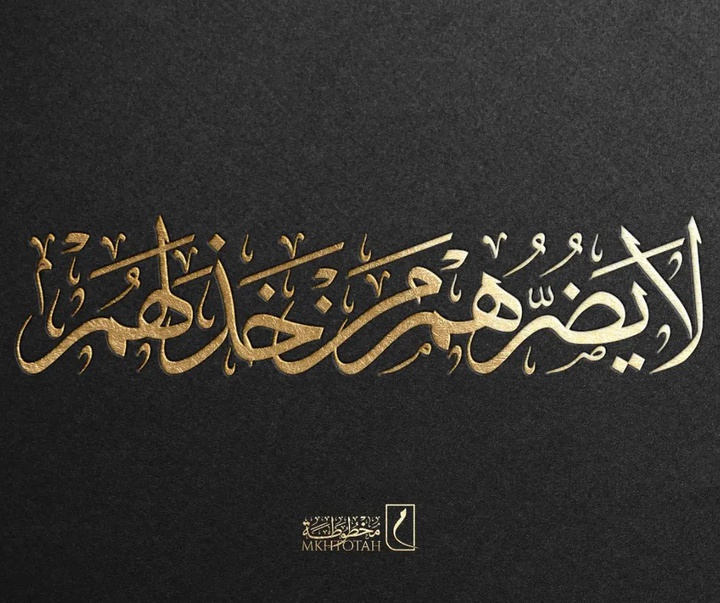 لا يضرهم من خذلهم
مخطوطة
MKHTOTAH